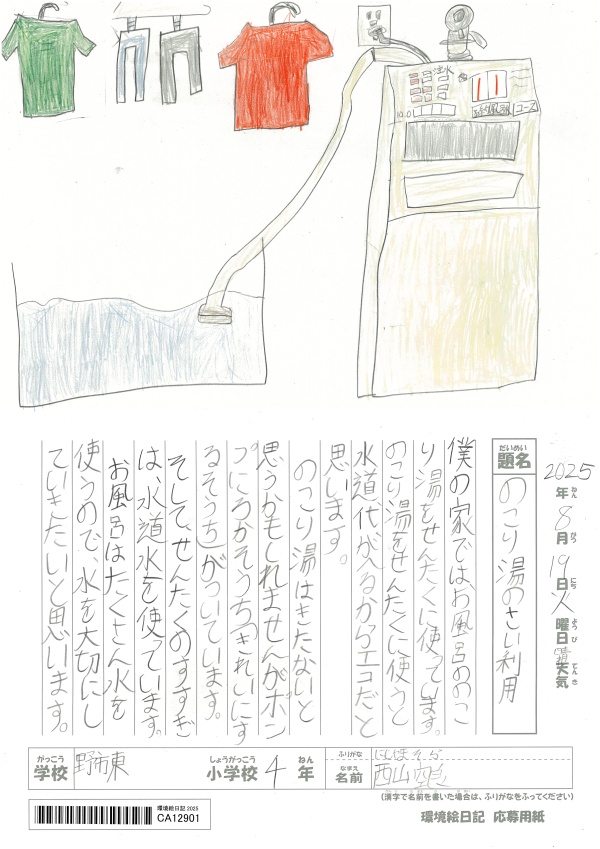 注水
10.0
コース
2025年8月19日火曜日晴天気
ねん
がつ
にち
ようび
てんき
だいめい
題名
のこり湯のさい利用
僕の家ではお風呂ののこ
り湯をせんたくに使っています。
のこり湯をせんたくに使うと
水道代がへるからエコだと
思います。
のこり湯はきたないと
思うかもしれませんがポン
プにろかそうち(きれいにす
るそうち)がついています。
そして、せんたくのすすぎ
は、水道水を使っています。
お風呂はたくさん水を
使うので、水を大切にし
ていきたいと思います。
がっこう
学校
野市東
しょうがっこう
小学校
4
ねん
年
ふりがな
にしやまそら
なまえ
名前
西山空良
(漢字で名前を書いた場合は、ふりがなをふってください)
環境絵日記 2025
CA12901
環境絵日記 応募用紙